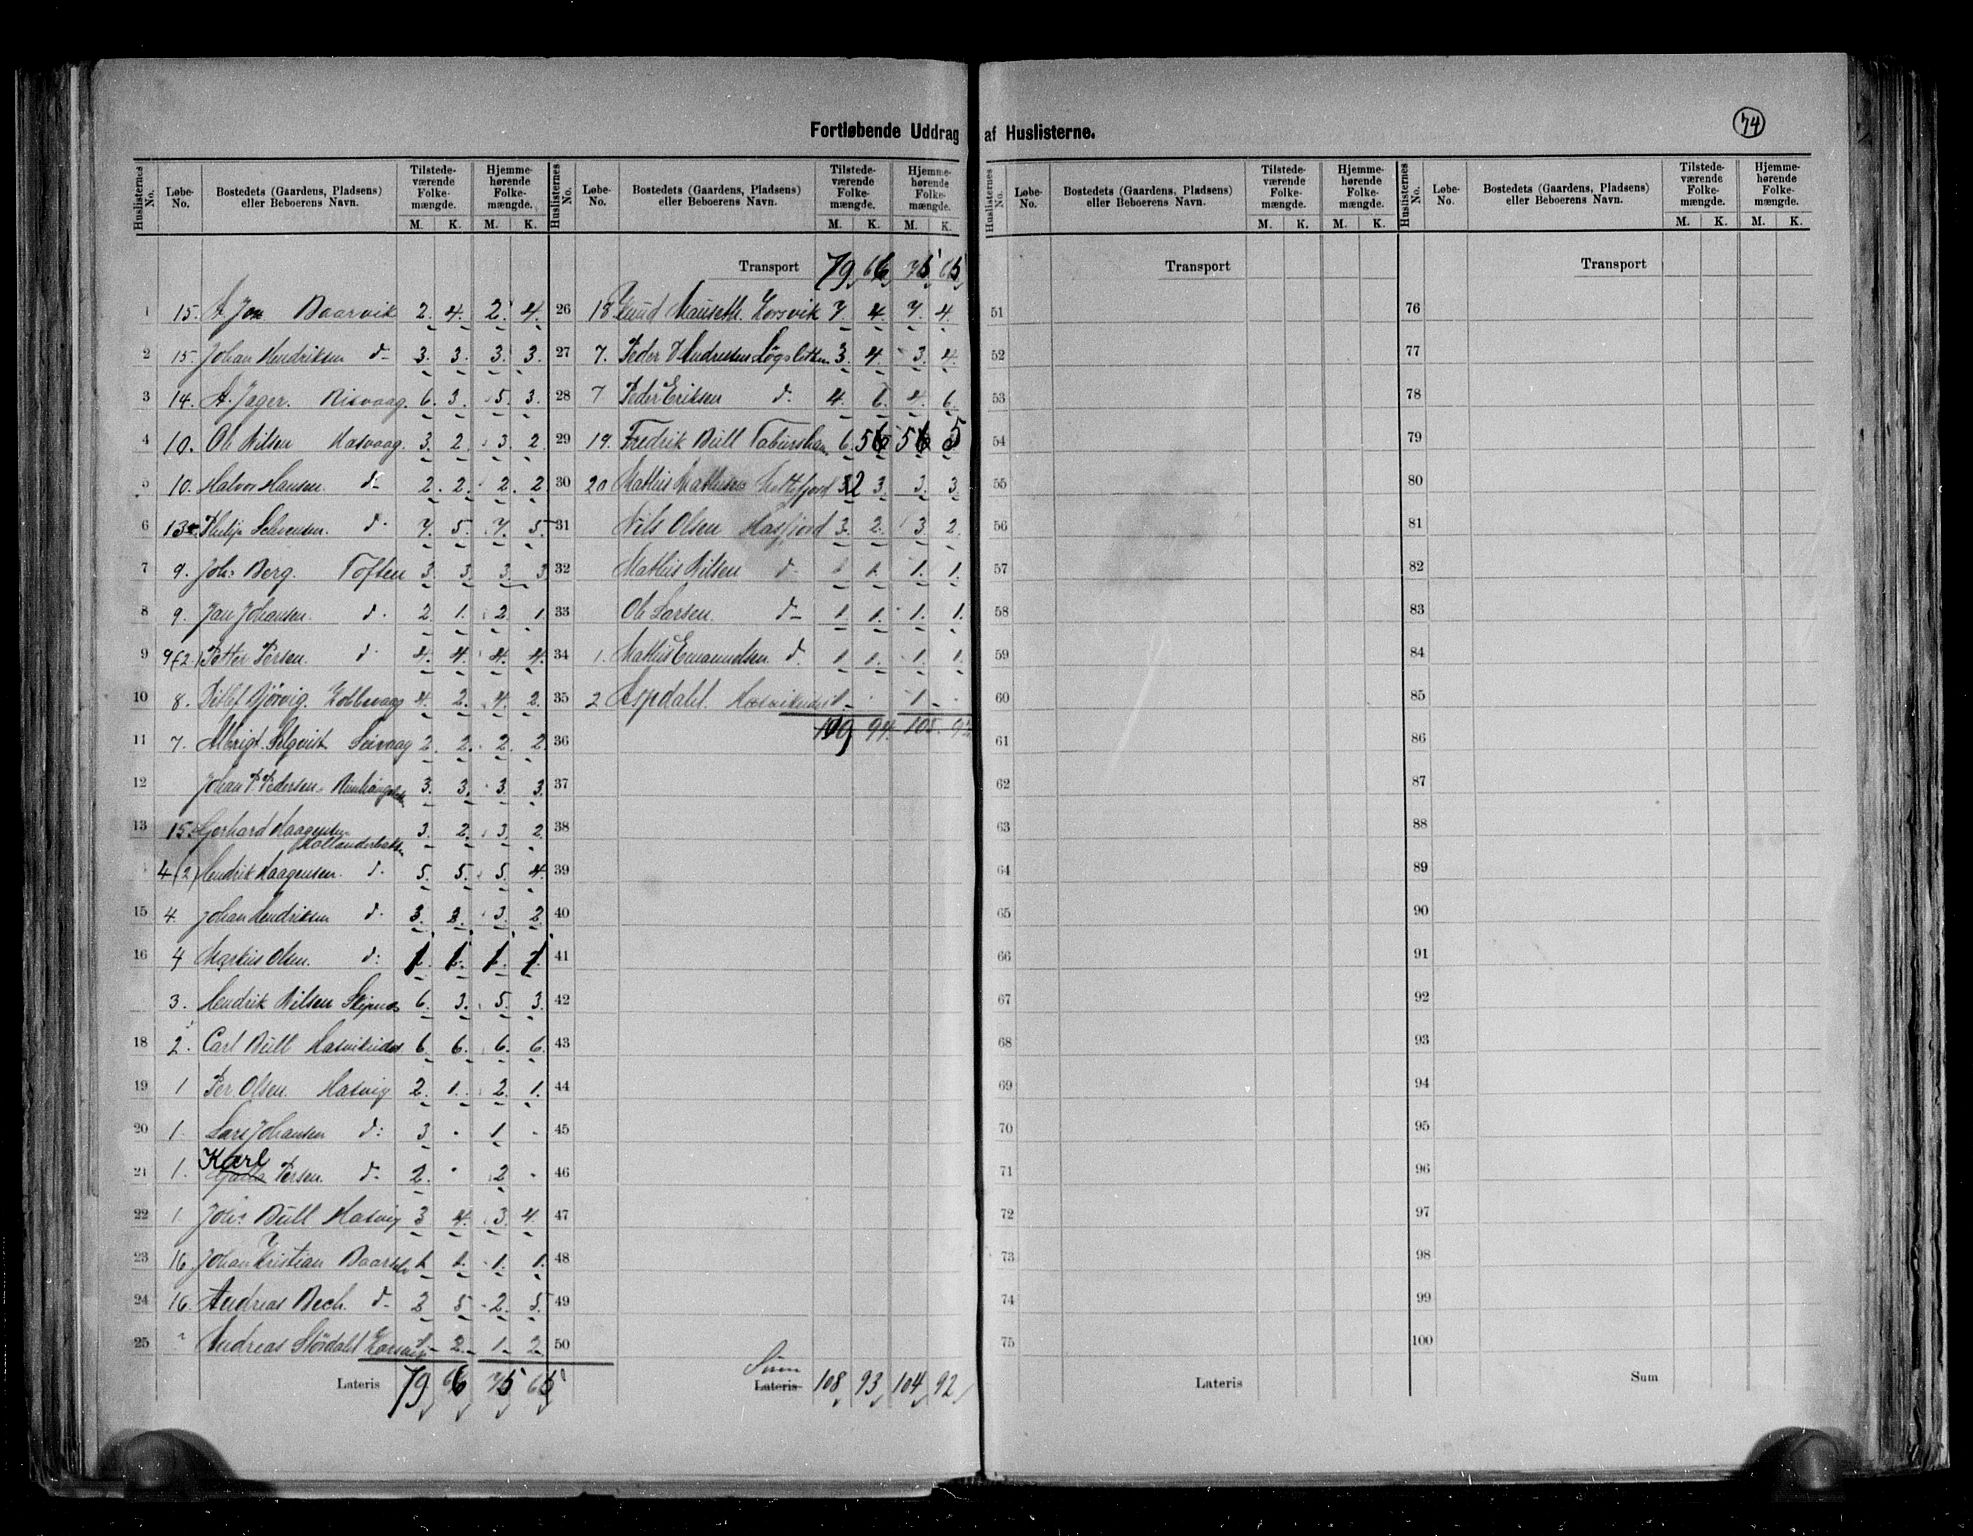 Fortløbende Uddrag af Huslisterne.
74
Huslisternes No. Løbe-No. Bostedets (Gaardens, Pladsens) eller Beboerens Navn. Tilstedeværende Folkemængde. M. K. Hjemmehørende Folkemængde. M. K.
1 15. A. Baarvik 2. 4. 2. 4.
2 15. Johan Hendriksen d- 3. 3. 3. 3.
3 14. A. Jager. Risvaag. 6. 3. 5. 3.
4 10. Ole Nilsen Hasvaag. 3. 2. 3. 2
5 10. Halvor Hansen. d- 2. 2. 2. 2
6 13. d. 7. 5. 7. 5
7 9. Joh: Berg. Toften 3. 3. 3. 3
8 9. Jan Johansen. d. 2. 1. 2. 1.
9 9(2) Petter Persen. d. 4. 4. 4. 4.
10 8. Bjørvig. 4. 2. 4. 2.
11 7. 2. 2. 2. 2.
12 Johan P. Pedersen. 3. 3. 3. 3.
13 15. Gerhard Haagensen 3. 2. 3. 2
4(2) Hendrik Haagensen. d. 5. 5. 5. 4.
15 4. Johan Hendriksen d. 3. 3. 2
16 4 Markus Olsen. d: 1. 1. 1. 1.
3. Hendrik Nilsen 6. 3. 5. 3.
18 2. Carl Büll 6. 6. 6. 6.
19 1 Per Olsen. Hasvig 2. 1. 2. 1.
20 1. Lars Johansen d: 3 - 1 -
21 1. Karl Persen. d. 2. - 2 -
22 1. Joh: Bull Hasvig 3 4. 3. 4.
23 16. Johan Kristian 1. 1. 1. 1.
24 16. Andreas Bech. d- 2 5 2. 5.
25 Andreas Stördahl 2. 1. 2.
Lateris 79 66 75 65
Huslisternes No. Løbe-No. Bostedets (Gaardens, Pladsens) eller Beboerens Navn. Tilstedeværende Folkemængde. M. K. Hjemmehørende Folkemængde. M. K.
Transport 79 66 75 65
26 18 Knud Mauseth. Korsvik 7. 4. 7. 4.
27 7. Peder 3. 4. 3. 4.
28 7 Peder Eriksen d. 4. 6. 4. 6.
29 19. Fredrik Büll 6. 5 5 5
30 20 Mathis Mathisen 2 3. 3. 3.
31 Nils Olsen Hasfjord 3. 2. 3. 2.
32 Mathis Nilsen d- 1. 1. 1.
33 Ole Larsen. d- 1. 1. 1. 1.
34 1. Mathis Emanuelsen d. 1. 1. 1. 1.
35 2 Aspdahl. 1. - 1 -
109 94. 105.
36
37
38
39
40
41
42
43
44
45
46
47
48
49
50
Sum
Lateris 108 93 104 92
Huslisternes No. Løbe-No. Bostedets (Gaardens, Pladsens) eller Beboerens Navn. Tilstedeværende Folkemængde. M. K. Hjemmehørende Folkemængde. M. K.
Transport
51
52
53
54
55
56
57
58
59
60
61
62
63
64
65
66
67
68
69
70
71
72
73
74
75
Lateris
Huslisternes No. Løbe-No. Bostedets (Gaardens, Pladsens) eller Beboerens Navn. Tilstedeværende Folkemængde. M. K. Hjemmehørende Folkemængde. M. K.
Transport
76
77
78
79
80
81
82
83
84
85
86
87
88
89
90
91
92
93
94
95
96
97
98
99
100
Sum